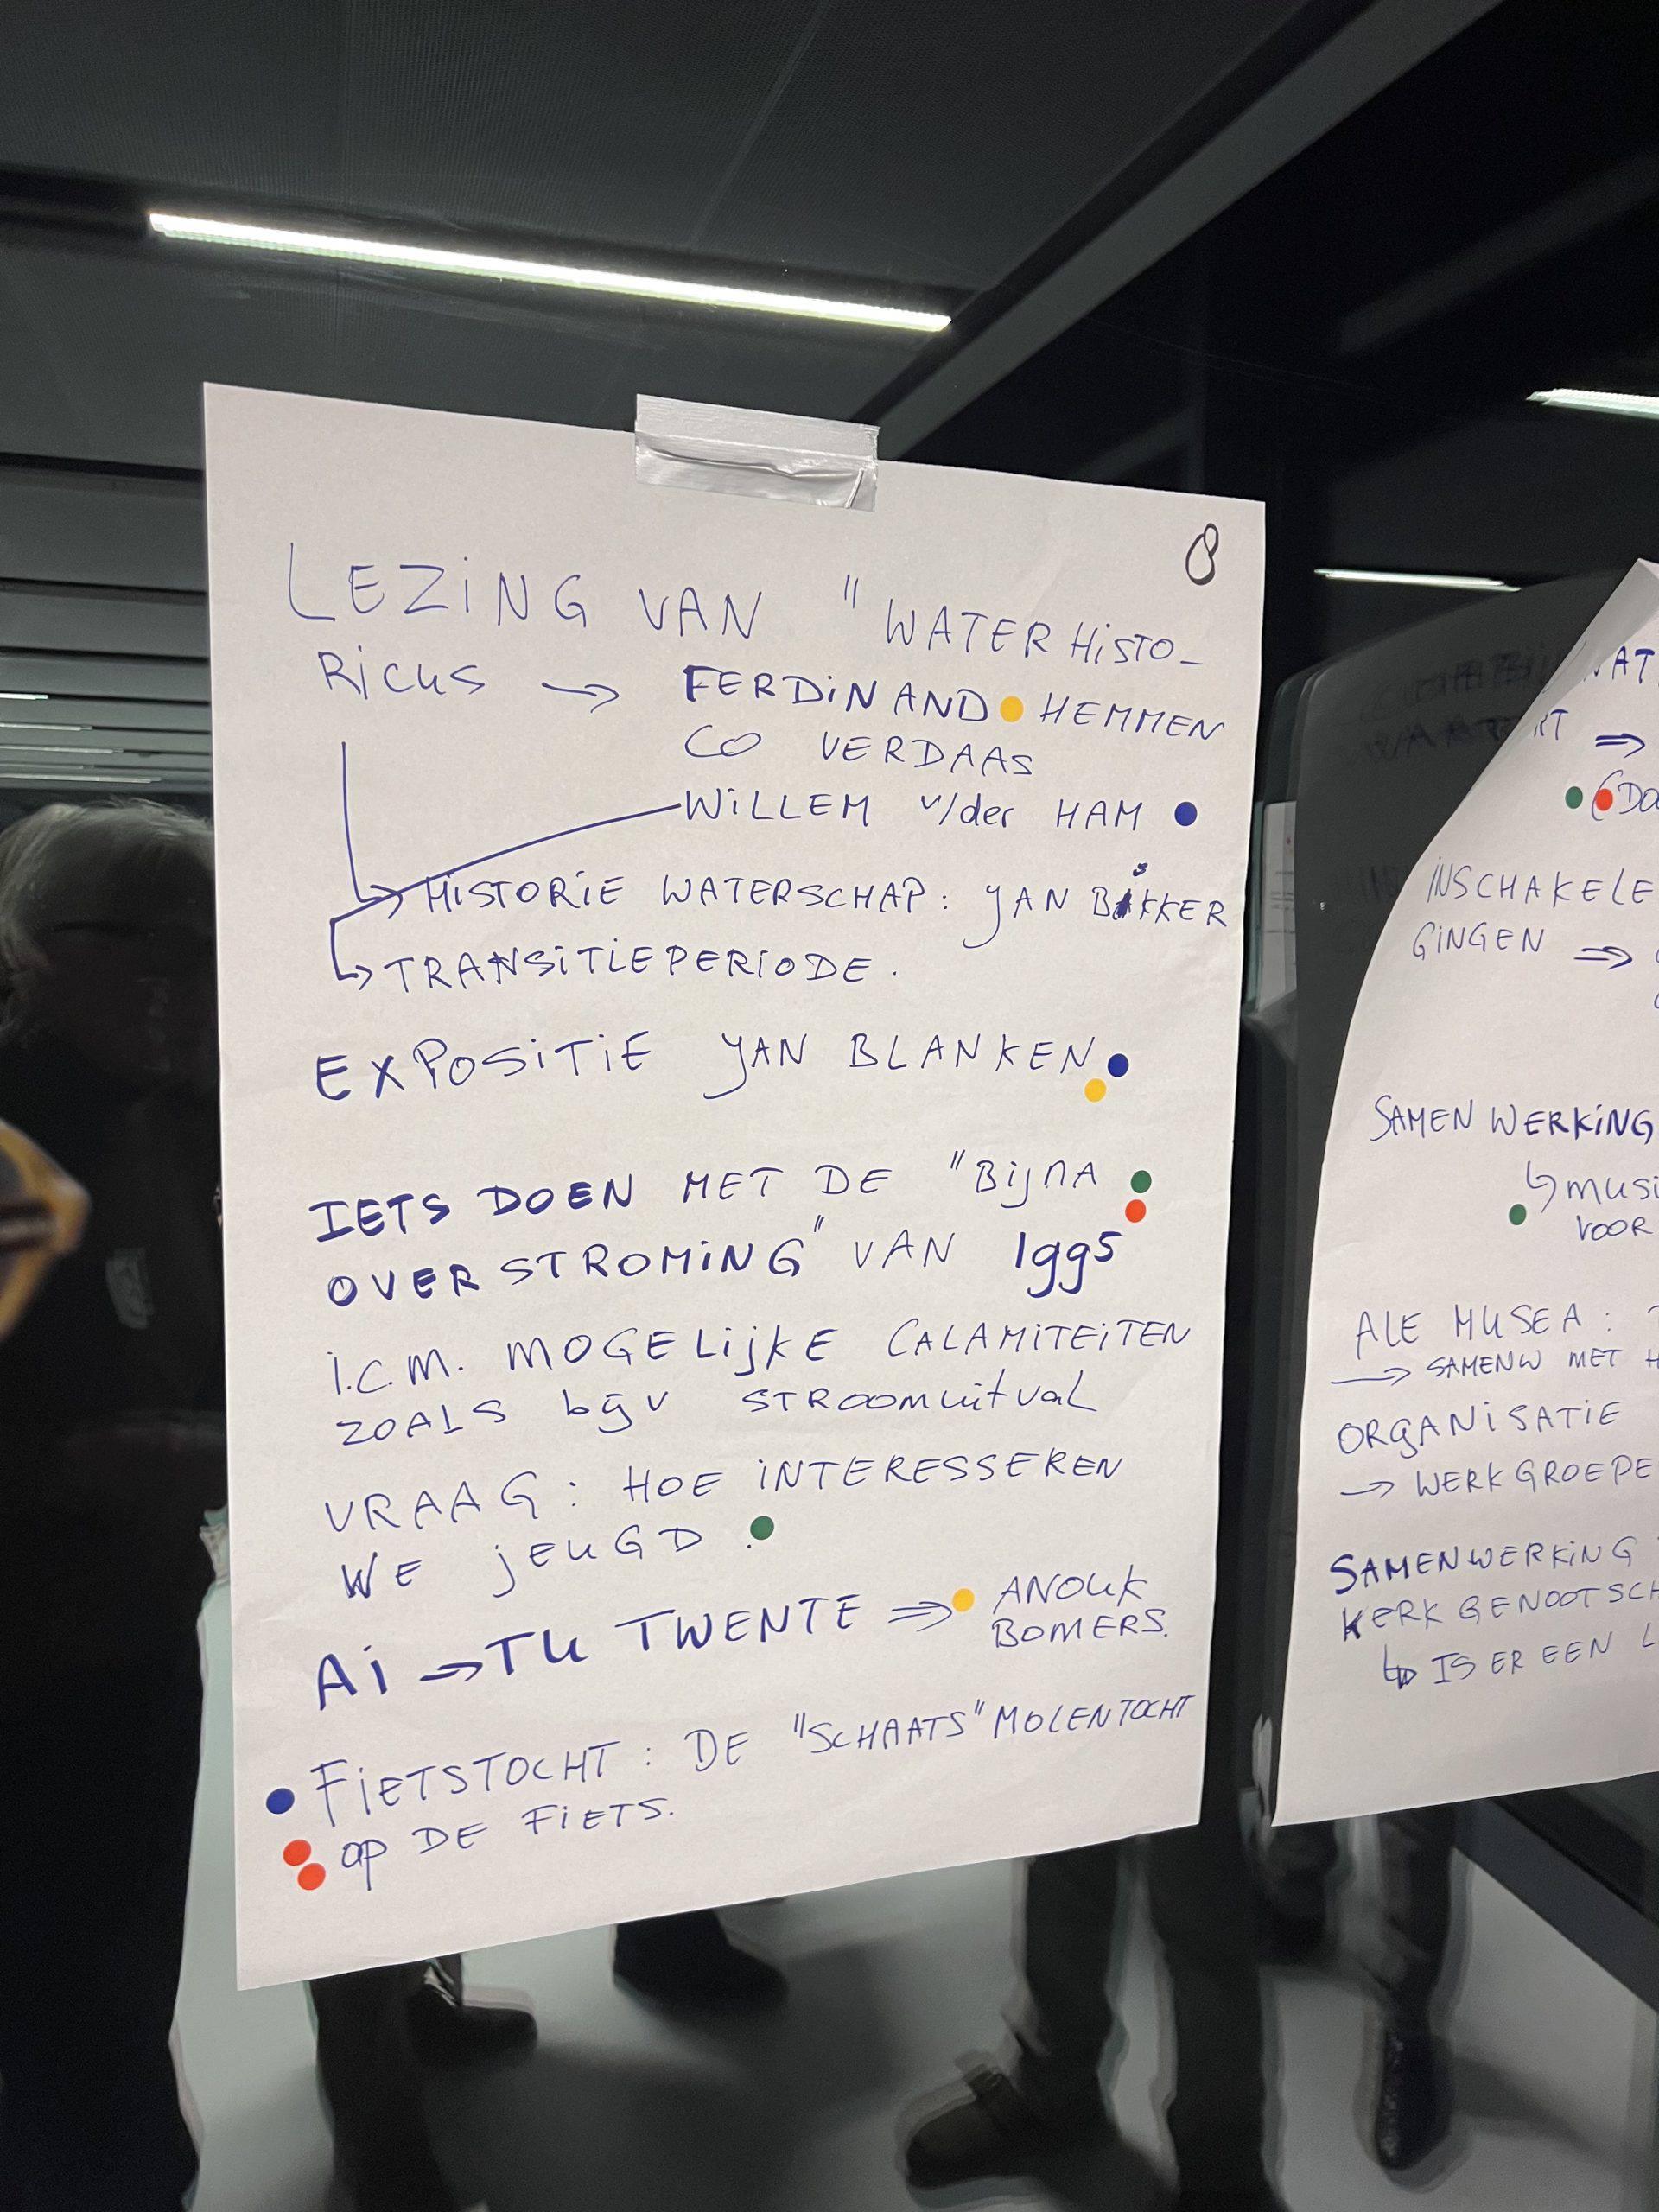 8
LEZiNG VAN "WATERHiSTO-
RiCUS → FERDiNAND HEMMEN
CO VERDAAS
WiLLEM v/der HAM
HiSTORiE WATERSCHAP: JAN BAKKER
TRANSiTiEPERiODE.
EXPOSiTiE JAN BLANKEN
IETS DOEN MET DE "BijnA
OVERSTROMiNG" VAN 1995
i.c.m. MOGELijkE CALAMiTEiTEN
ZOALS bijv STROOMuitval
VRAAG: HOE iNTERESSEREN
WE jEUGD.
Ai → TU TWENTE ⇒ ANOUK
BOMERS.
FiETSTOCHT: DE "SCHAATS" MOLENTOCHT
op DE FiETS.
iNSCHAKELE
GiNGEN ⇒
SAMENWERKiNG
musi
VOOR
ALE MUSEA:
→ SAMENW MET H
ORGANiSATiE
→ WERKGROEPE
SAMENWERKiNG
KERKGENOOTSCH
IS ER EEN L